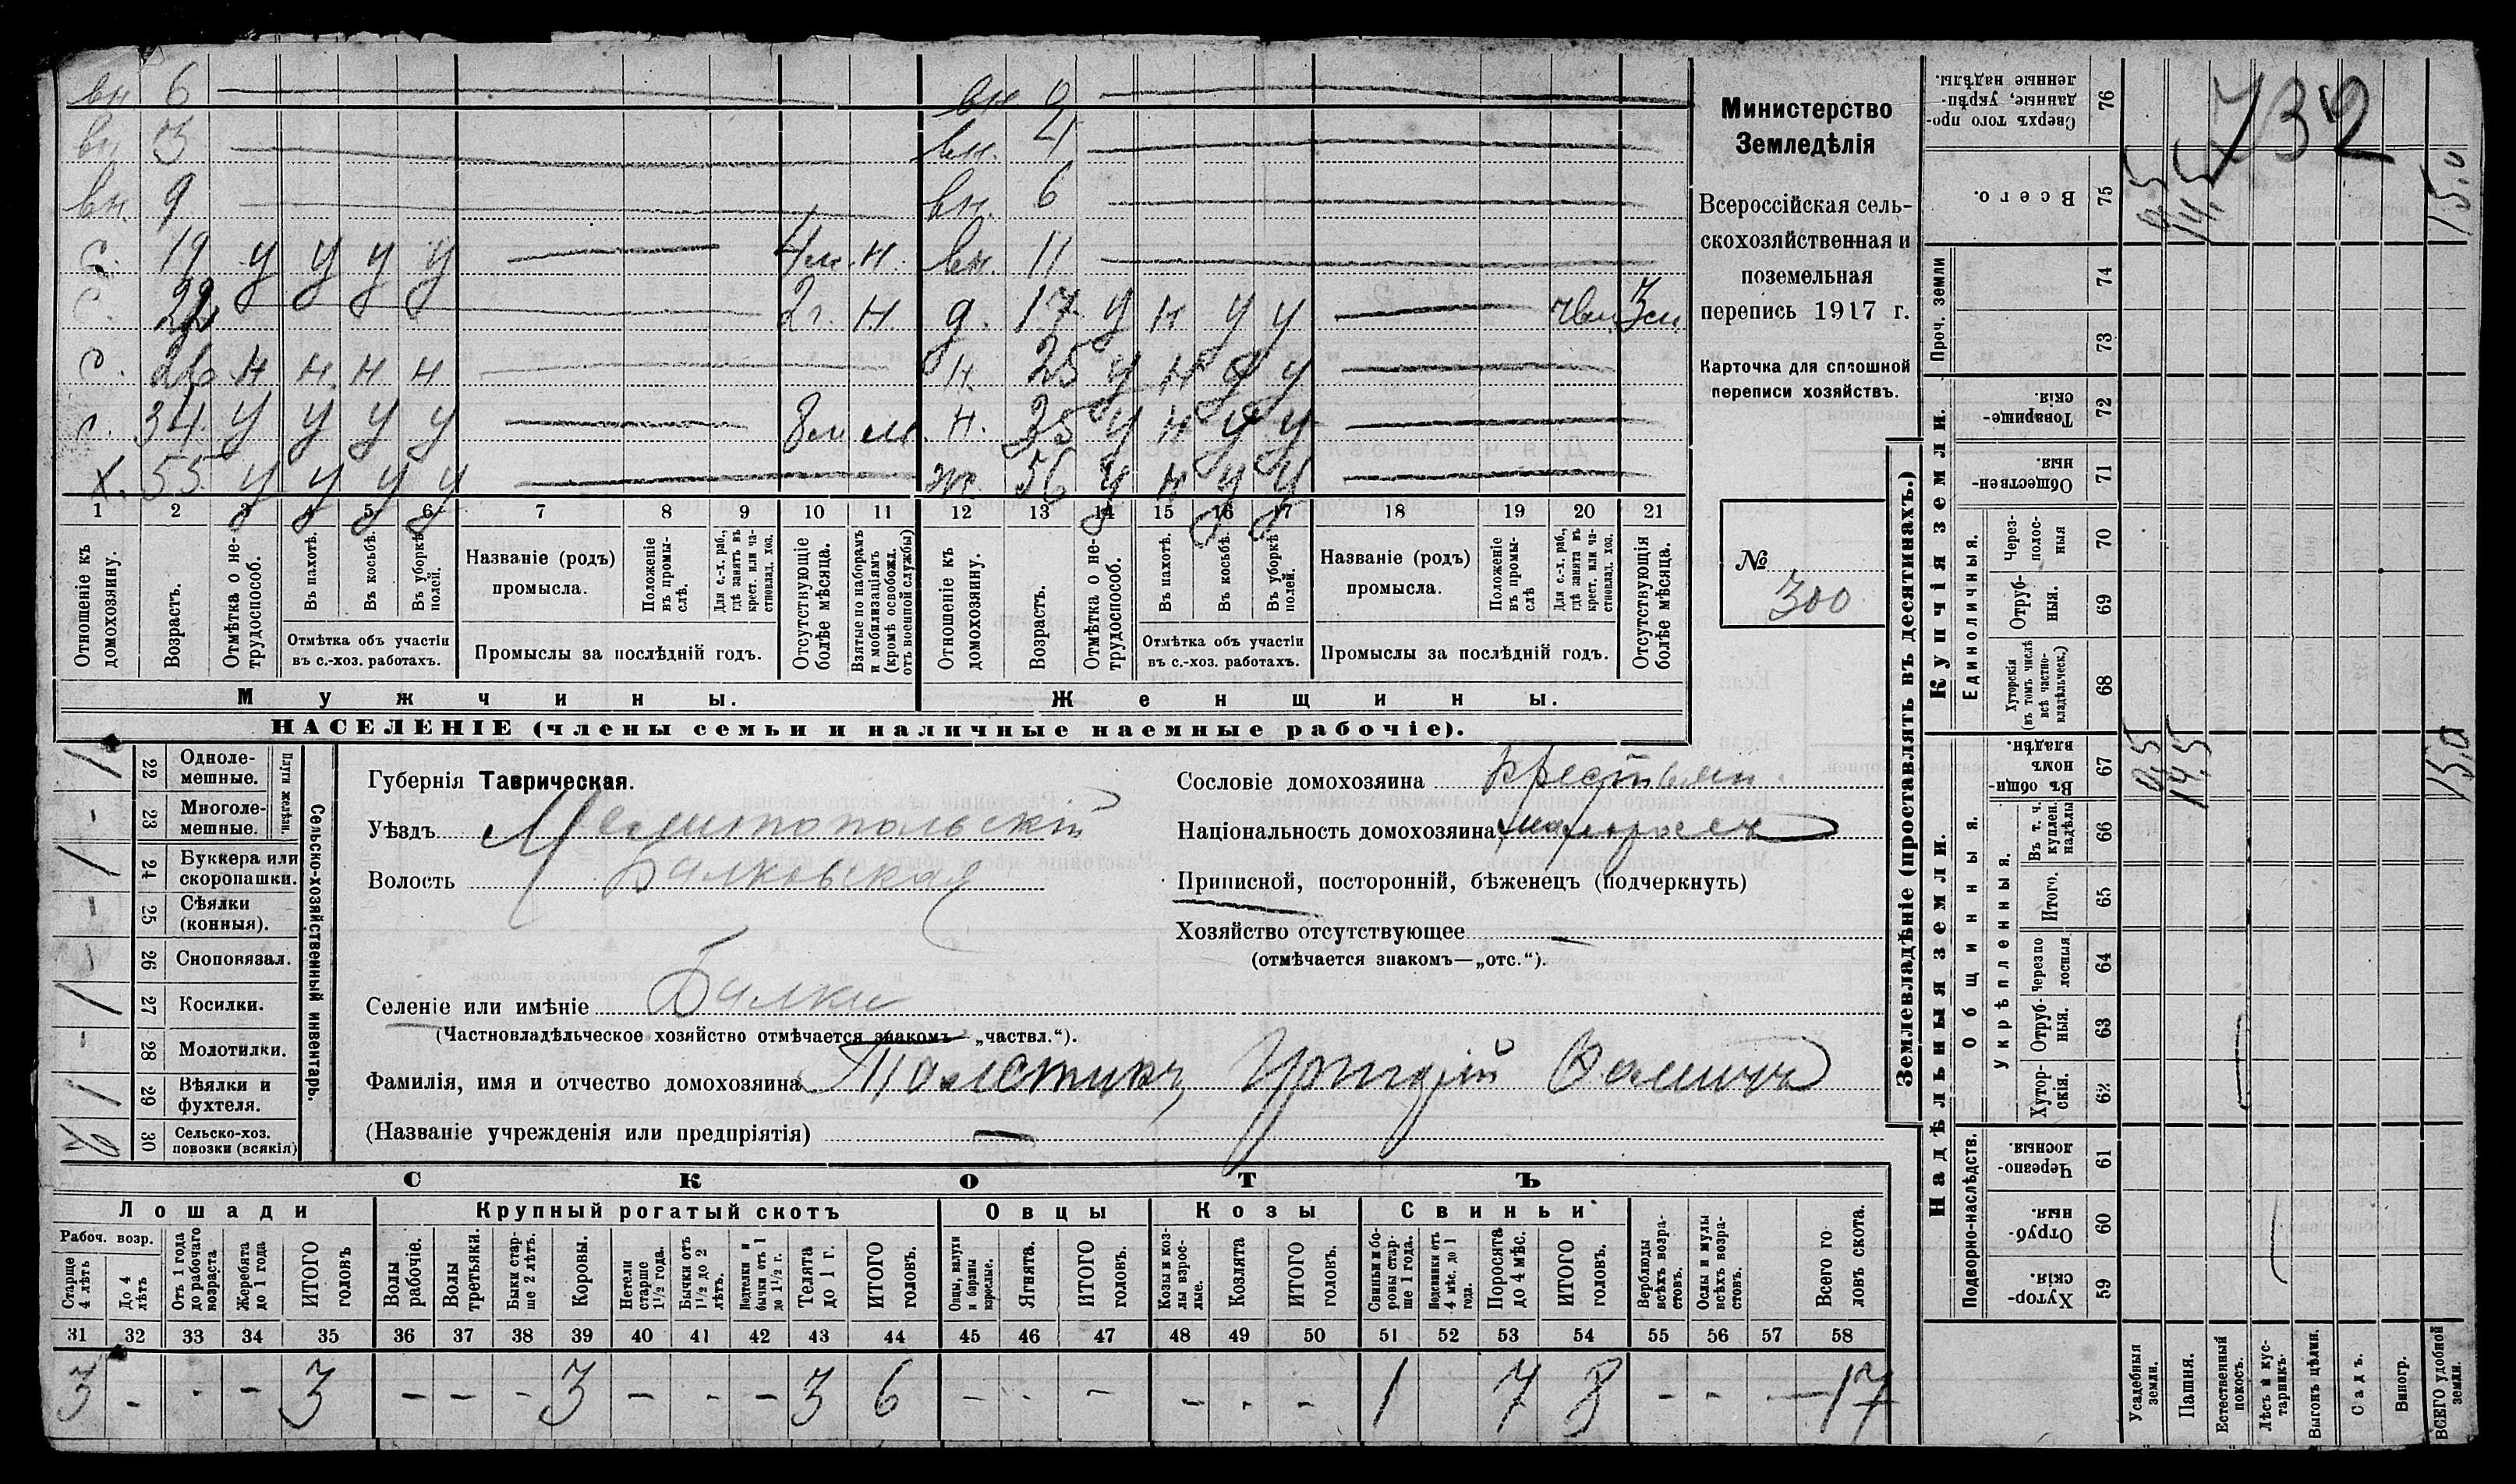 вн 6 вн
вн 3 вн. 4
вн. 9 вн. 6
с. 19 у у у у 4м. н. вн. 11
с. 2г. н. д. 17 у н у у 3м
с. 26 н н н н н. 25 у н у у
с. 34. у у у у 8м м. н. 35 у н у у
х. 55 у у у у ж. 56 у н у у
1 2 3 4 5 6 7 8 9 10 11 12 13 14 15 16 17 18 19 20 21
Отношеніе къ домохозяину.
Возрастъ.
Отмѣтка о не-трудоспособ.
Въ пахотѣ.
Въ косьбѣ.
Въ уборкѣ полей.
Отмѣтка объ участіи
въ с.-хоз. работахъ.
Названіе (родъ)
промысла.
Положеніе въ промы-слѣ.
Для с.-х. раб., гдѣ занятъ въ крест. или ча-стновлад. хоз.
Промыслы за послѣдній годъ.
Отсутствующіе болѣе мѣсяца.
Взятые по наборамъ и мобилизаціямъ (кромѣ освобожд. отъ военной службы)
Отношеніе къ домохозяину.
Возрастъ.
Отмѣтка о не-трудоспособ.
Въ пахотѣ.
Въ косьбѣ.
Въ уборкѣ полей.
Отмѣтка объ участіи
въ с.-хоз. работахъ.
Названіе (родъ)
промысла.
Положеніе въ промы-слѣ
Для с.-х. раб., гдѣ занятъ въ крест. или ча-стновлад. хоз.
Промыслы за послѣдній годъ.
Отсутствующія болѣе мѣсяца.
Мужчины. Женщины.
НАСЕЛЕНІЕ (члены семьи и наличные наемные рабочіе).
Министерство
Земледѣлія
Всероссійская сель-
скохозяйственная и
поземельная
перепись 1917 г.
Карточка для сплошной
переписи хозяйствъ.
№
300
Сельско-хозяйственный инвентарь.
Плуги желѣзн.
1 22 Одноле-мешные.
- 23 Многоле-мешные.
1 24 Буккера или скоропашки.
- 25 Сѣялки (конныя).
- 26 Сноповязал.
1 27 Косилки.
- 28 Молотилки.
1 29 Вѣялки и фухтеля.
30 Сельско-хоз. повозки (всякія)
Губернія Таврическая.
Уѣздъ Мелитопольскій
Волость Балковская
Селеніе или имѣніе Балки
(Частновладѣльческое хозяйство отмѣчается знакомъ „частвл.“).
Фамилія, имя и отчество домохозяина Толстикъ
(Названіе учрежденія или предпріятія) —
Сословіе домохозяина крестьян.
Національность домохозяина малоросъ
Приписной, посторонній, бѣженецъ (подчеркнуть)
Хозяйство отсутствующее —
(отмѣчается знакомъ—„отс.“).
СКОТЪ
Лошади Крупный рогатый скотъ Овцы Козы Свиньи
Рабоч. возр.
Старше 4 лѣтъ
До 4 лѣтъ
Отъ 1 года до рабочаго возраста
Жеребята до 1 года
ИТОГО головъ
Волы рабочіе.
Волы третьяки.
Быки стар-ше 2 лѣтъ.
Коровы.
Нетели старше 1½ года.
Бычки отъ 1½ до 2 лѣтъ.
Подтелки и бычки отъ 1 до 1½ г.
Телята до 1 г.
ИТОГО головъ.
Овцы, валухи и бараны взрослые.
Ягнята.
ИТОГО головъ.
Козы и коз-лы взрос-лые.
Козлята
ИТОГО головъ.
Свиньи и бо-ровы стар-ше 1 года.
Подсвинки отъ 4 мѣс. до 1 года.
Поросята до 4 мѣс.
ИТОГО головъ.
Верблюды всѣхъ возра-стовъ.
Ослы и мулы всѣхъ возра-стовъ.
Всего го ловъ скота.
31 32 33 34 35 36 37 38 39 40 41 42 43 44 45 46 47 48 49 50 51 52 53 54 55 56 57 58
3 - - - 3 - - - 3 - - - 3 6 - - - - - - 1 7 8 - - - 17
Землевладѣніе (проставлять въ десятинахъ.)
732
Купчія земли.
Надѣльныя земли.
Сверхъ того про-данные, укрѣп-ленные надѣлы. 76
Всего. 75 0,5 14,5 15,0
Проч. земли 74 73
Товарище-скія. 72
Обществен-ныя. 71
Единоличныя.
Через-полос-ныя 70
Отруб-ныя. 69
Хуторскія (въ томъ числѣ всѣ частно-владѣльческ.) 68
Общинныя.
Въ общин-номъ владѣн. 67 0,5 14,5 15,0
Укрѣпленныя.
Въ т. ч. куплен. надѣлы 66
Итого. 65
Черезпо лосныя 64
Отруб-ныя. 63
Хутор-скія. 62
Подворно-наслѣдств.
Черезпо-лосныя. 61
Отруб-ныя. 60
Хутор-скія. 59
Усадебныя земли.
Пашня.
Естественный покосъ.
Лѣсъ и кус-тарникъ.
Выгонъ цѣлин.
Садъ.
Виногр.
ВСЕГО удобной земли.